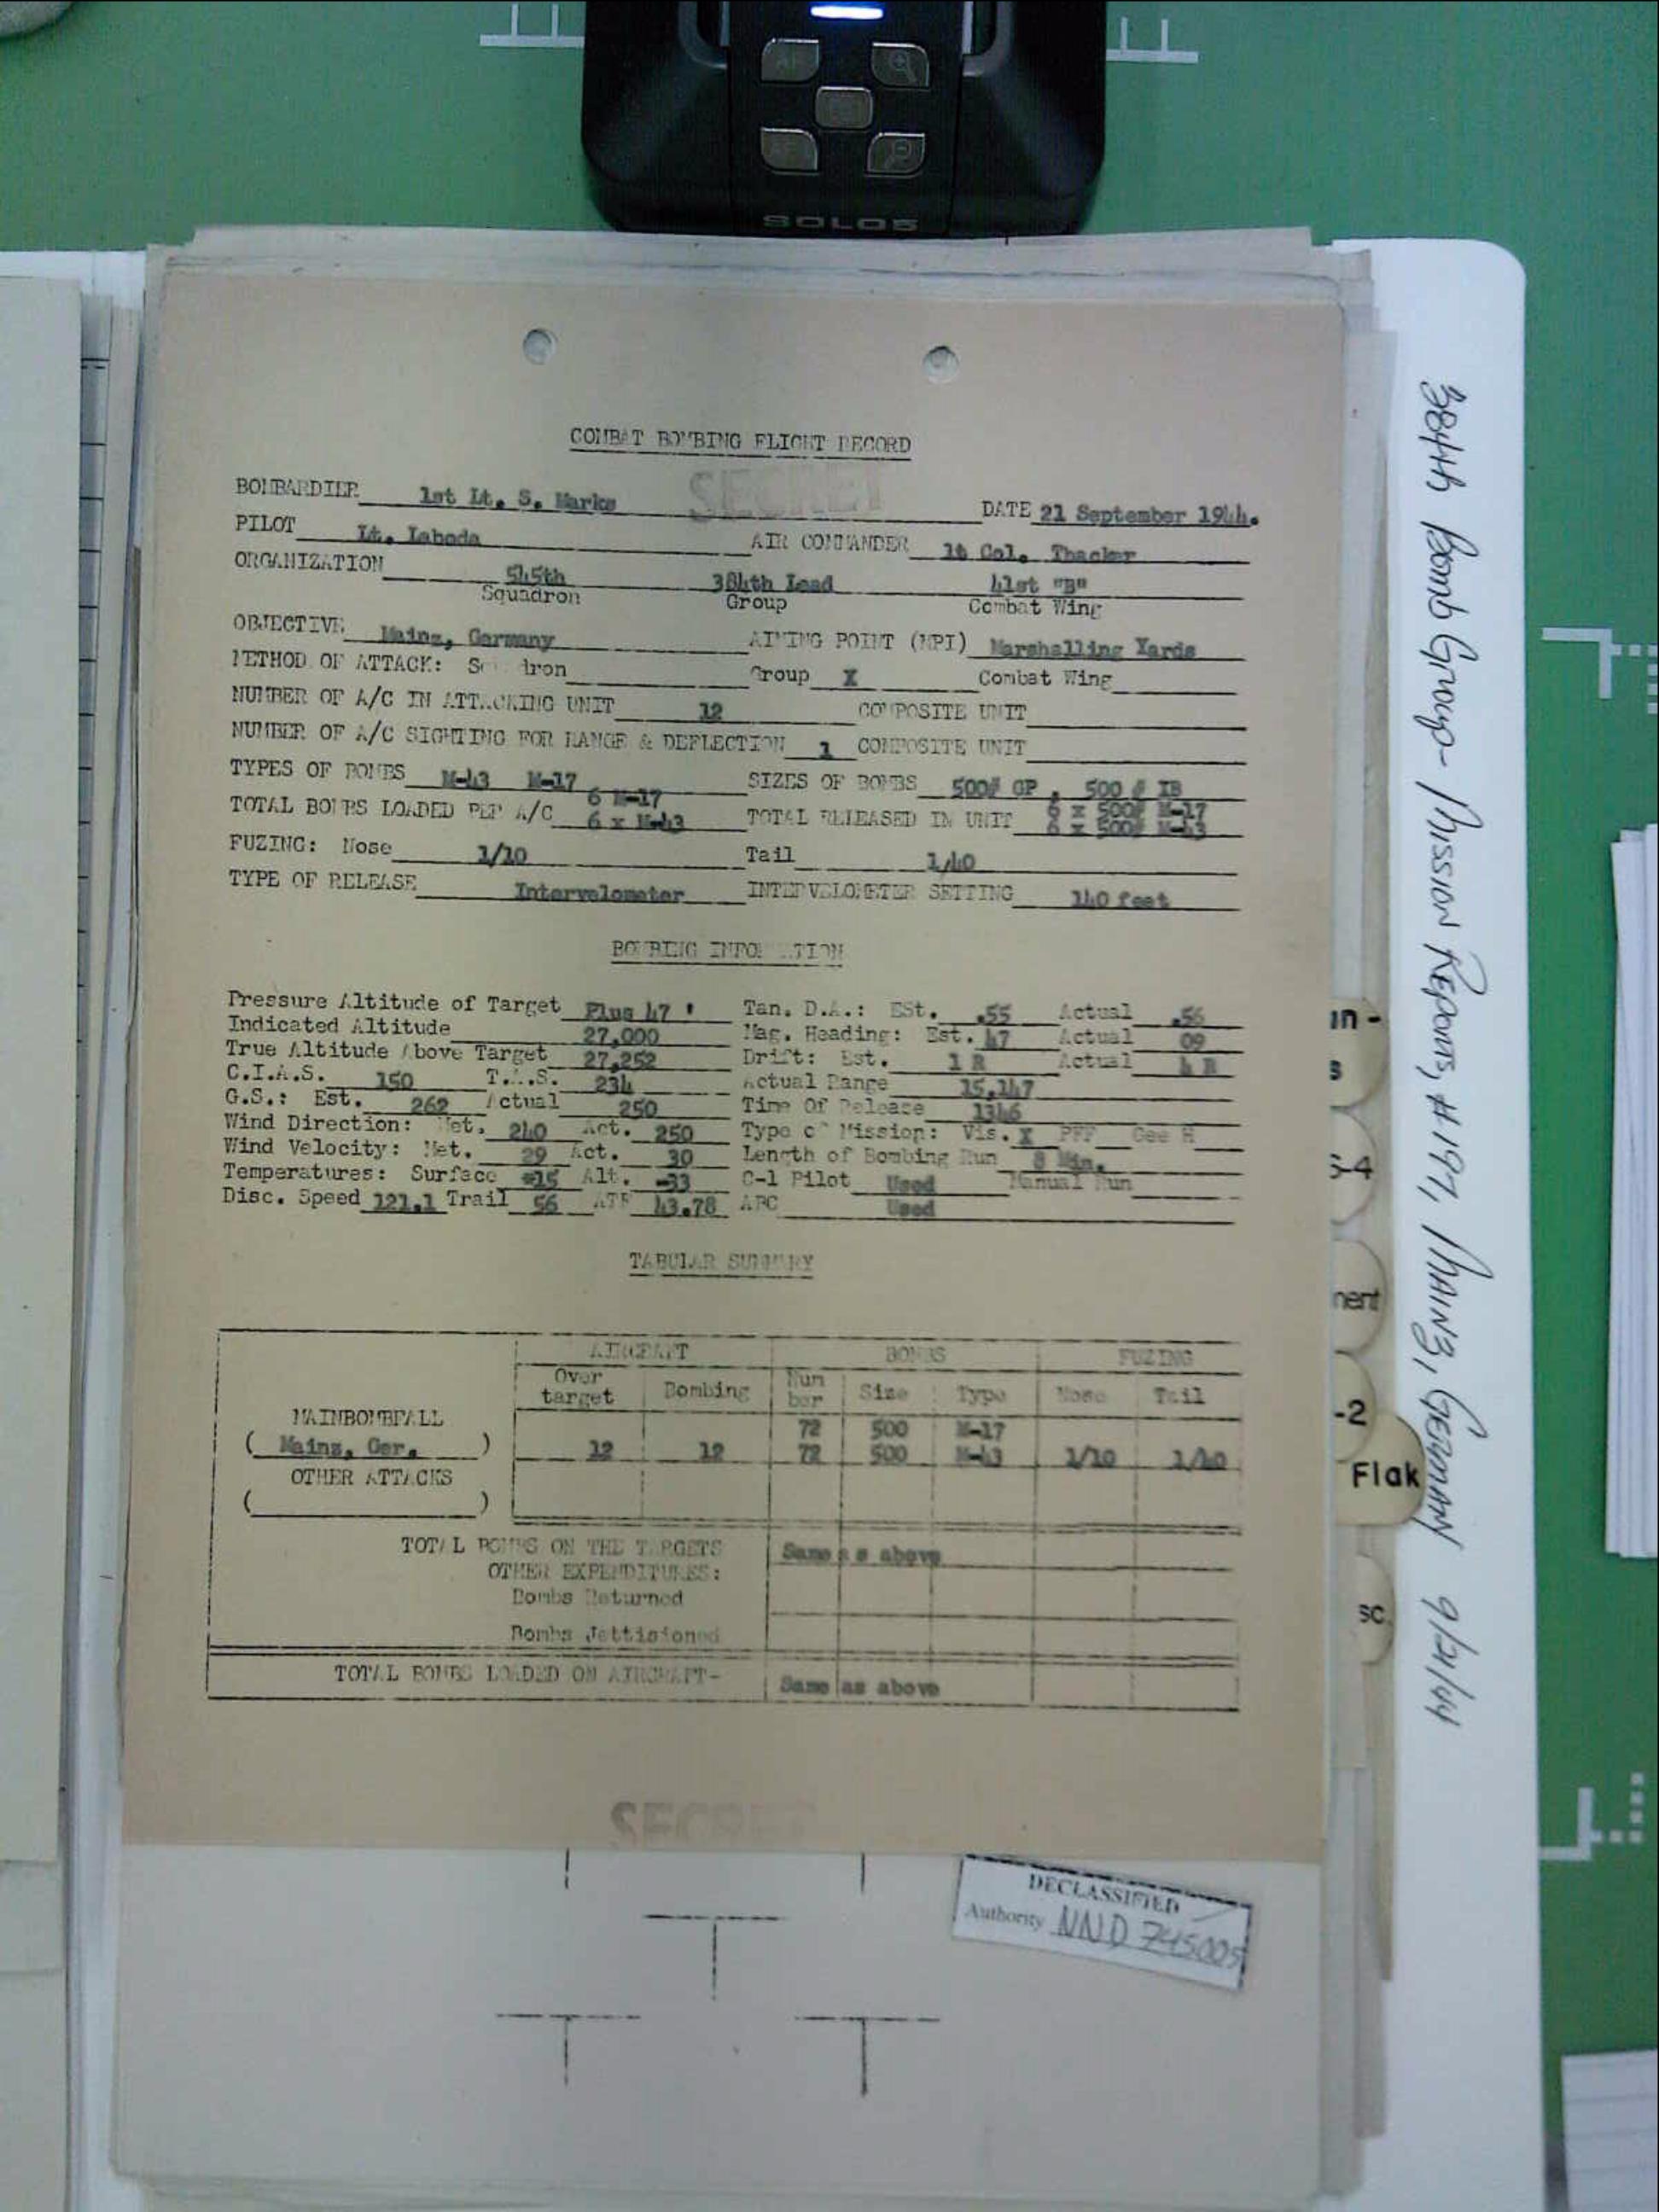 SOLO8
COMBAT BOMBING FLIGHT RECORD
SECRET
BOMBARDIER 1st Lt. S. Marks DATE 21 September 1944.
PILOT Lt. Laboda AIR COMMANDER lt Col. Thacker
ORGANIZATION 545th 384th Lead 41st "B"
Squadron Group Combat Wing
OBJECTIVE Mainz, Germany AIMING POINT (MPI) Marshalling Yards
METHOD OF ATTACK: Squadron Group X Combat Wing
NUMBER OF A/C IN ATTACKING UNIT 12 COMPOSITE UNIT
NUMBER OF A/C SIGHTING FOR RANGE & DEFLECTION 1 COMPOSITE UNIT
TYPES OF BOMBS M-43 M-17 SIZES OF BOMBS 500# GP , 500 # IB
6 M-17 6 x 500# M-17
TOTAL BOMBS LOADED PER A/C 6 x M-43 TOTAL RELEASED IN UNIT 6 x 500# M-43
FUZING: Nose 1/10 Tail 1/40
TYPE OF RELEASE Intervalometer INTERVALOMETER SETTING 140 feet
BOMBING INFORMATION
Pressure Altitude of Target Plus 47 ' Tan. D.A.: ESt. .55 Actual .56
Indicated Altitude 27,000 Mag. Heading: Est. 47 Actual 09
True Altitude Above Target 27,252 Drift: Est. 1 R Actual 4 R
C.I.A.S. 150 T.A.S. 234 Actual Range 15,147
G.S.: Est. 262 Actual 250 Time Of Release 1346
Wind Direction: Met. 240 Act. 250 Type of Mission: Vis. X PFF Gee H
Wind Velocity: Met. 29 Act. 30 Length of Bombing Run 8 Min.
Temperatures: Surface +15 Alt. -33 C-1 Pilot Used Manual Run
Disc. Speed 121.1 Trail 56 ATF 43.78 AFC Used
TABULAR SUMMARY
AIRCRAFT BOMBS FUZING
Over target Bombing Num ber Size Type Nose Tail
MAINBOMBFALL 72 500 M-17
( Mainz, Ger. ) 12 12 72 500 M-43 1/10 1/40
OTHER ATTACKS
( )
TOTAL BOMBS ON THE TARGETS Same a s above
OTHER EXPENDITURES:
Bombs Returned
Bombs Jettisioned
TOTAL BOMBS LOADED ON AIRCRAFT- Same as above
SECRET
DECLASSIFIED
Authority NND 745005
384th Bomb Group - Mission Reports, #197, Mainz, Germany 9/21/44
in -
s
S-4
ment
-2
Flak
sc.